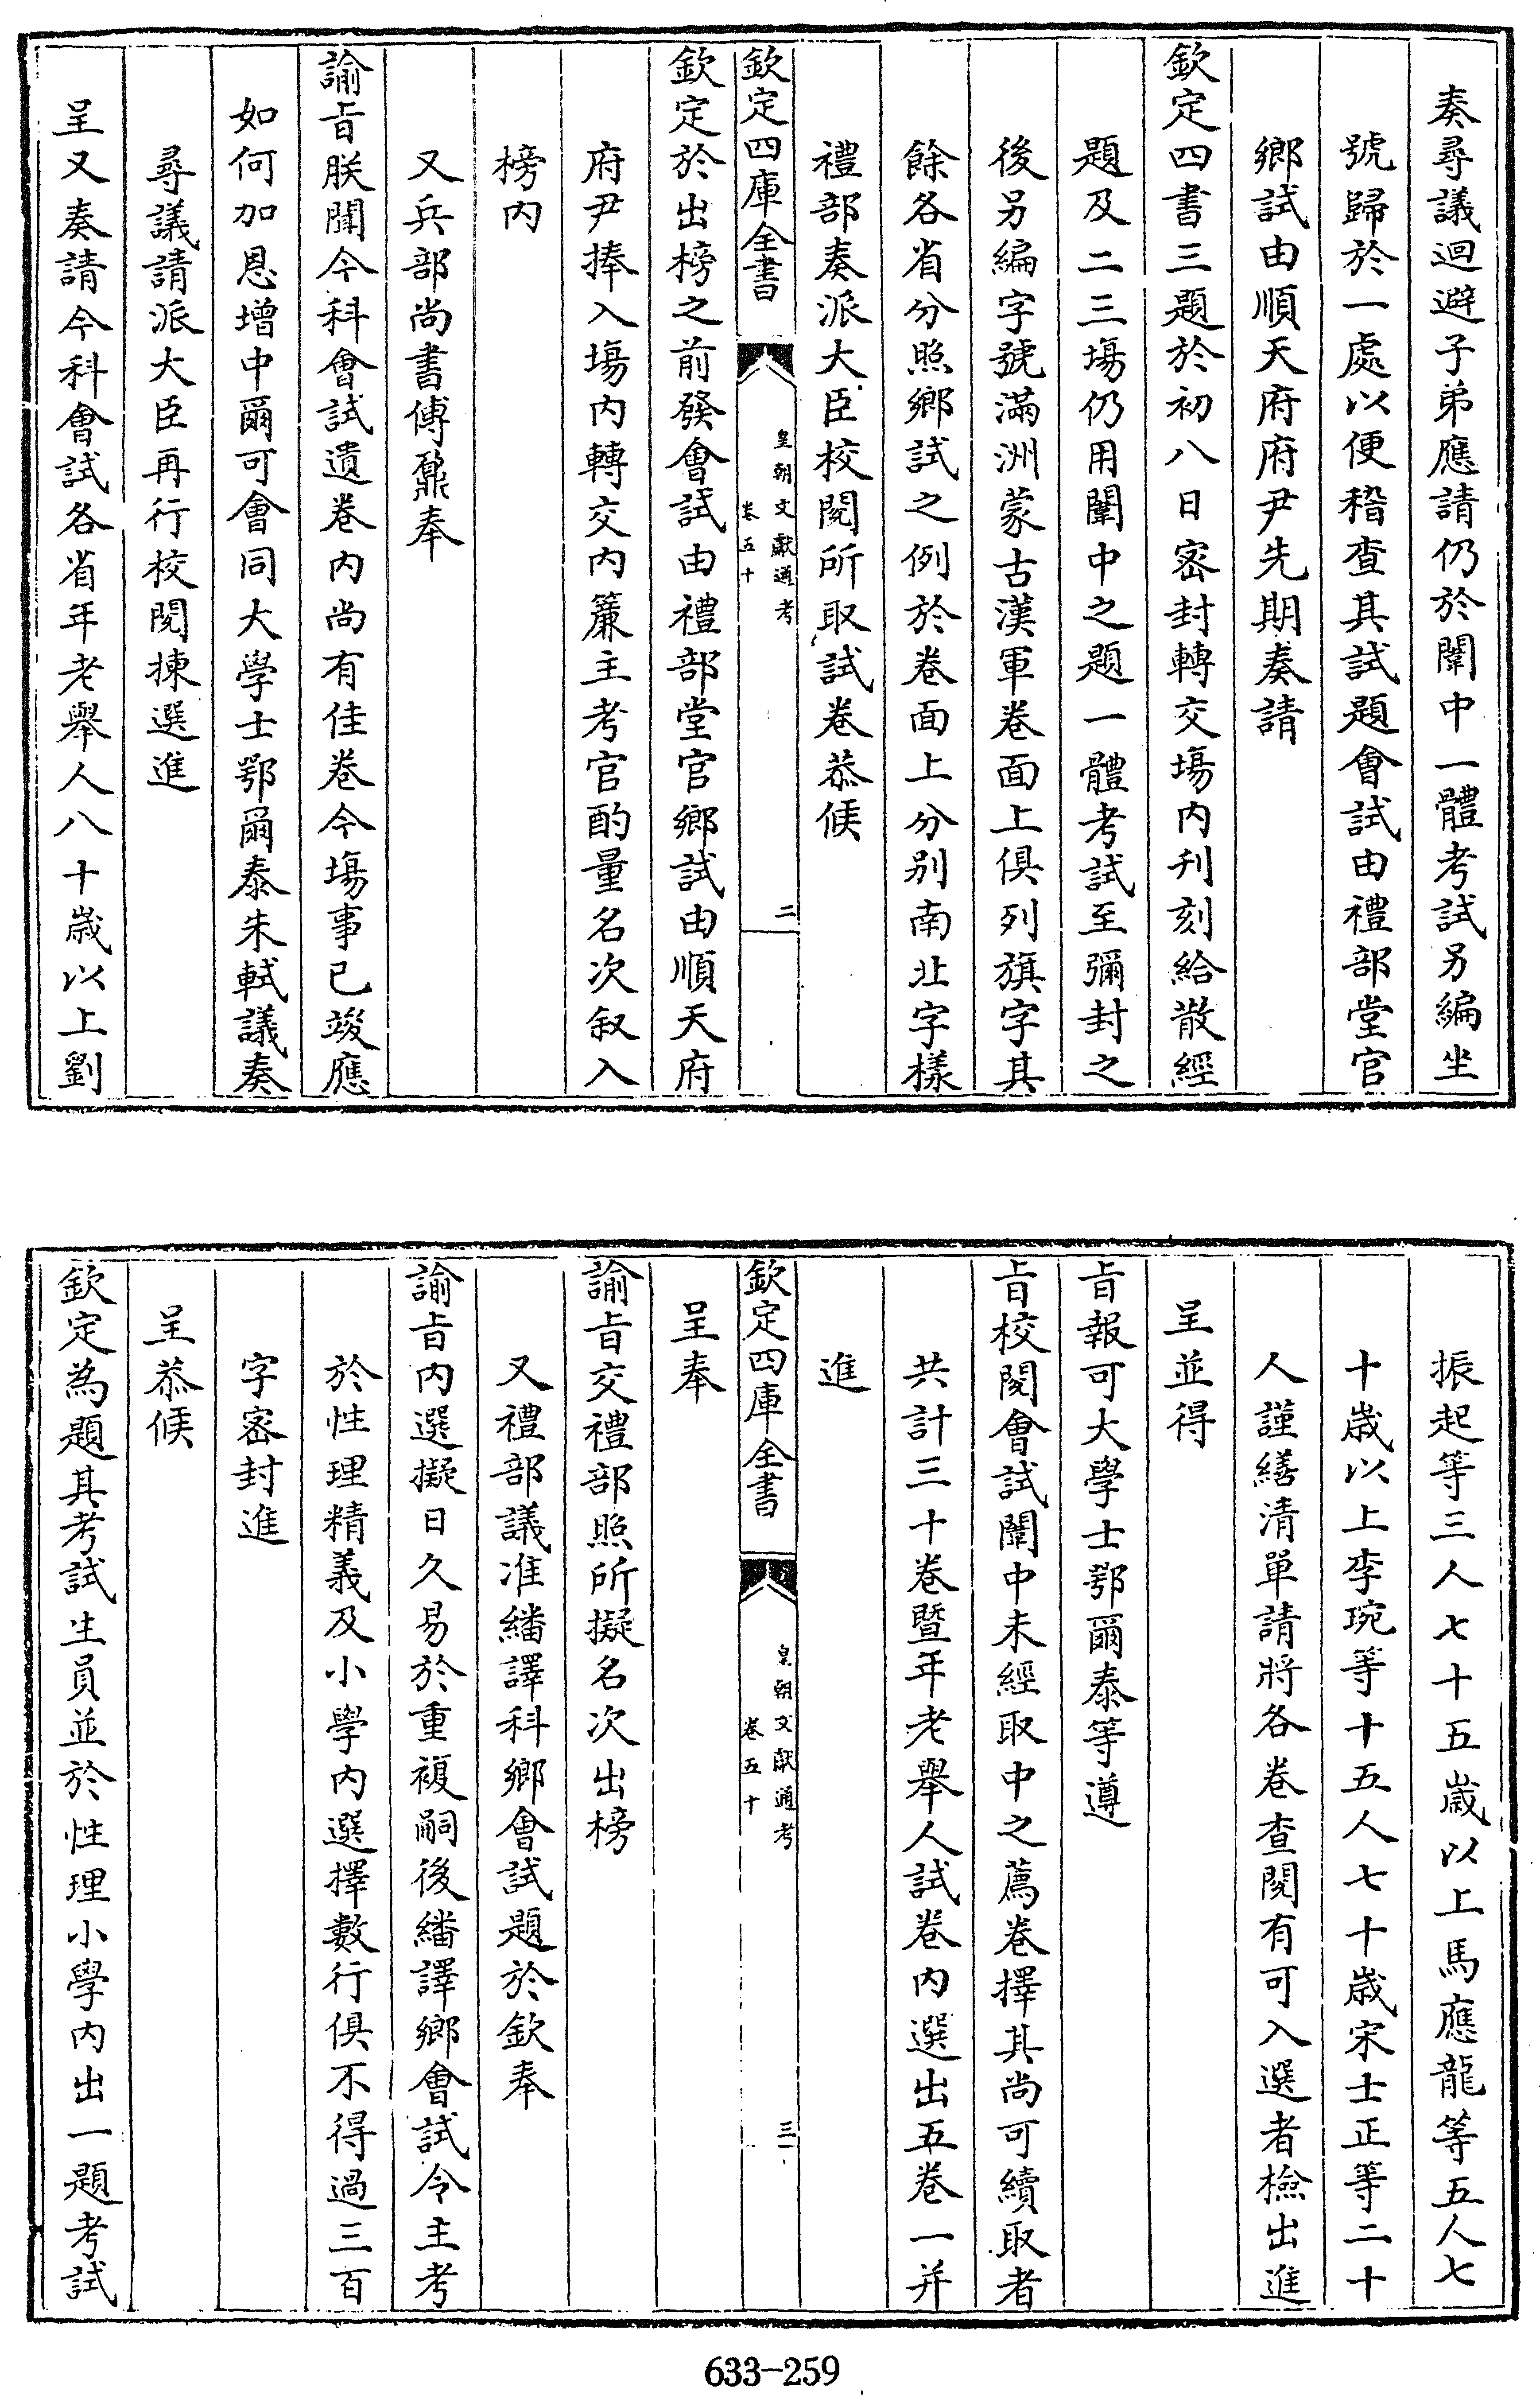 奏尋議迴避子弟應請仍於闈中一體考試另編坐
號歸於一處以便稽查其試題會試由禮部堂官
鄉試由順天府府尹先期奏請
欽定四書三題於初八日密封轉交場內刊刻給散經
題及二三場仍用闈中之題一體考試至彌封之
後另編字號滿洲蒙古漢軍卷面上俱列旗字其
餘各省分照鄉試之例於卷面上分別南北字樣
禮部奏派大臣校閱所取試卷恭候
欽定四庫全書
皇朝文獻通考
卷五十
二
欽定於出榜之前發會試由禮部堂官鄉試由順天府
府尹捧入場內轉交內簾主考官酌量名次叙入
榜內
又兵部尚書傅鼐奉
諭旨朕聞今科會試遺卷內尚有佳卷今場事已竣應
如何加恩增中爾可會同大學士鄂爾泰朱軾議奏
尋議請派大臣再行校閱揀選進
呈又奏請今科會試各省年老舉人八十歲以上劉
振起等三人七十五歲以上馬應龍等五人七
十歲以上李琬等十五人七十歲宋士正等二十
人謹繕清單請將各卷查閱有可入選者檢出進
呈並得
旨報可大學士鄂爾泰等遵
旨校閱會試闈中未經取中之薦卷擇其尚可續取者
共計三十卷暨年老舉人試卷內選出五卷一并
進
欽定四庫全書
皇朝文獻通考
卷五十
三
呈奉
諭旨交禮部照所擬名次出榜
又禮部議准繙譯科鄉會試題於欽奉
諭旨內選擬日久易於重複嗣後繙譯鄉會試令主考
於性理精義及小學內選擇數行俱不得過三百
字密封進
呈恭候
欽定為題其考試生員並於性理小學內出一題考試
633-259